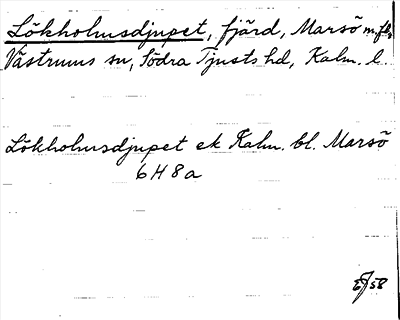 Lökholmsdjupet, fjärd, Marsö m.fl.,
Västrums sn, Södra Tjusts hd, Kalm. l.
Lökholmsdjupet ek Kalm. bl. Marsö
6H8a
58